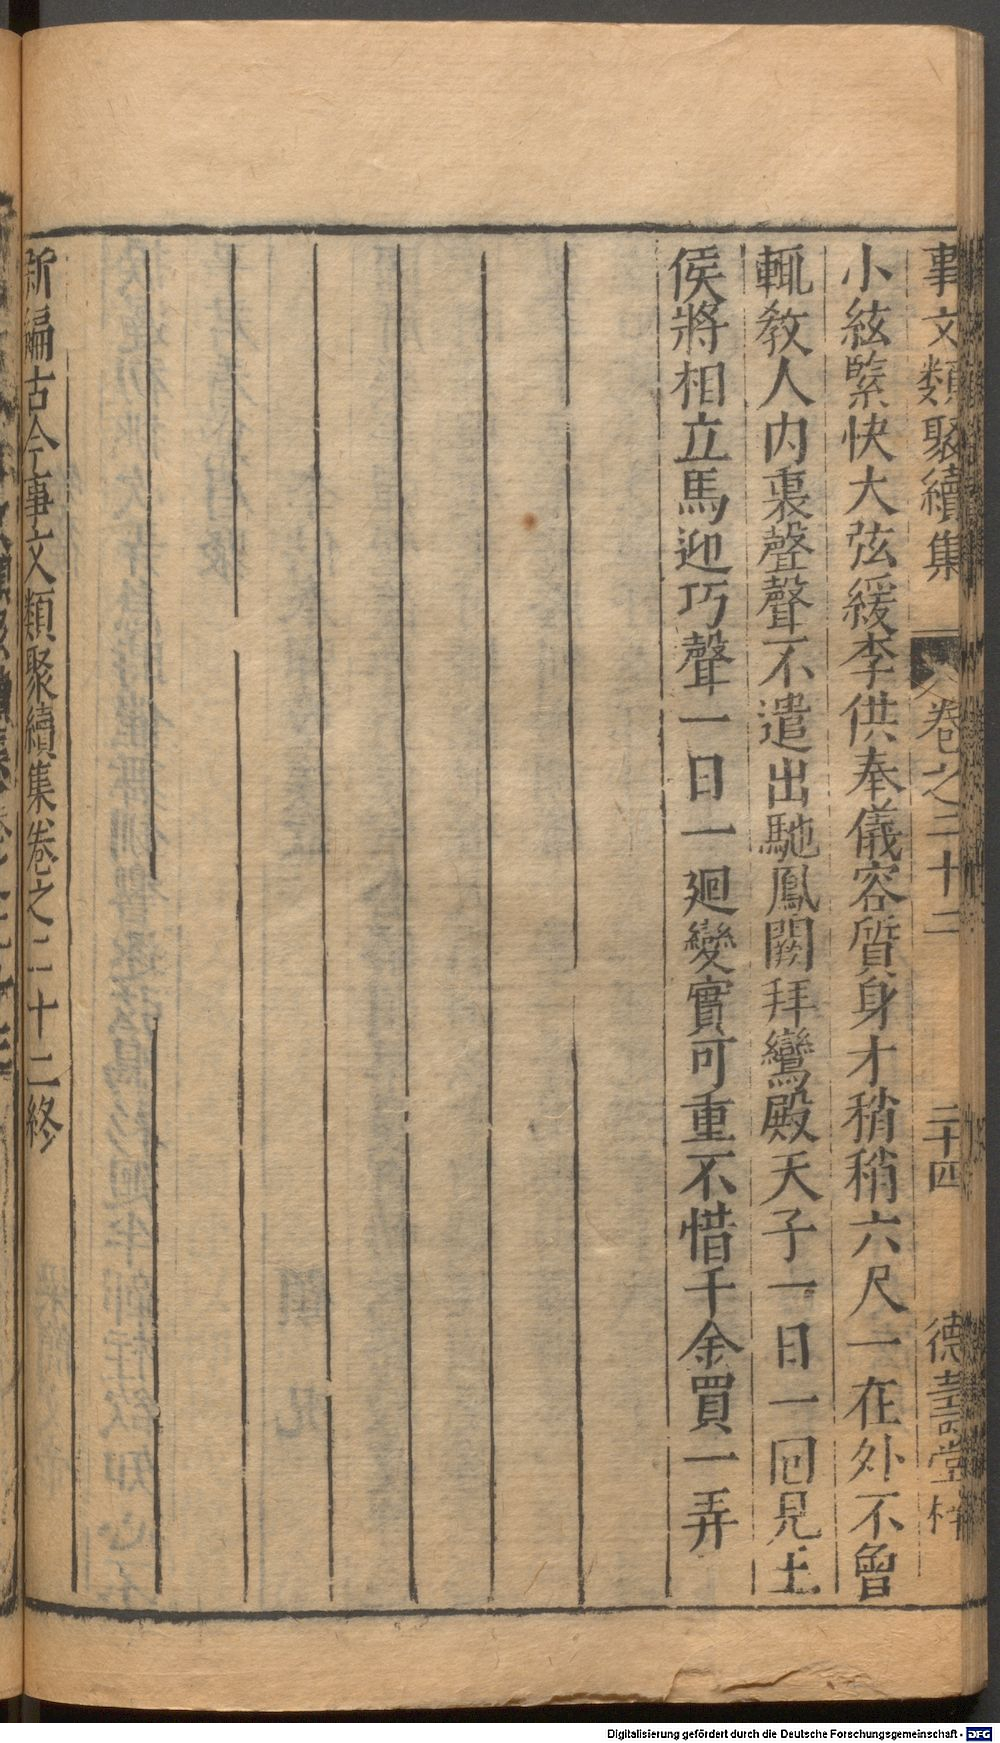 事文類聚續集 卷之二十二 二十四 德壽堂梓
小絃緊快大弦緩李供奉儀容質身才稍稍六尺一在外不曾
輒教人内裏聲聲不遣出馳鳳闕拜鸞殿天子一日一回見王
侯將相立馬迎巧聲一日一廻變實可重不惜千金買一弄
新編古今事文類聚續集卷之二十二終
Digitalisierung gefördert durch die Deutsche Forschungsgemeinschaft - DFG